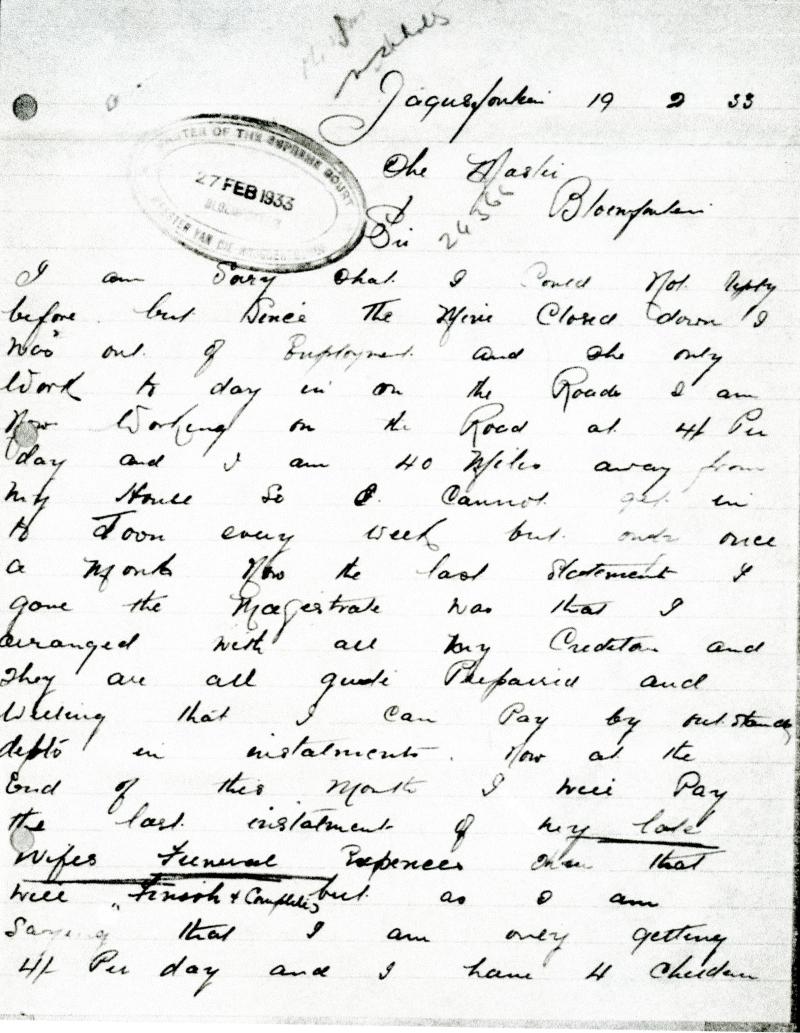 Jagersfontein 19 2 33
The Master
Bloemfontein
Sir
24366
MASTER OF THE SUPREME COURT
27 FEB 1933
MEESTER VAN DIE
I am Sory that I Could Not reply
before but Since the Mine Closed down I
was out of Employment and the only
Work to day is on the Roads I am
Now Working on the Road at 4/ Per
day and I am 40 Miles away from
my House So I Cannot get in
to Town every week but once
a Month Now the last Statement I
gave the Magestrate was that I
arranged with all my Creditors and
They are all quite Prepaired and
Willing that I can Pay by outstanding
depts in instalments. Now at the
End of this Month I will Pay
the last instalment of my late
Wifes Funeral Expences and that
will "Finish & Complete" but as I am
Saying that I am only getting
4/ Per day and I have 4 Children